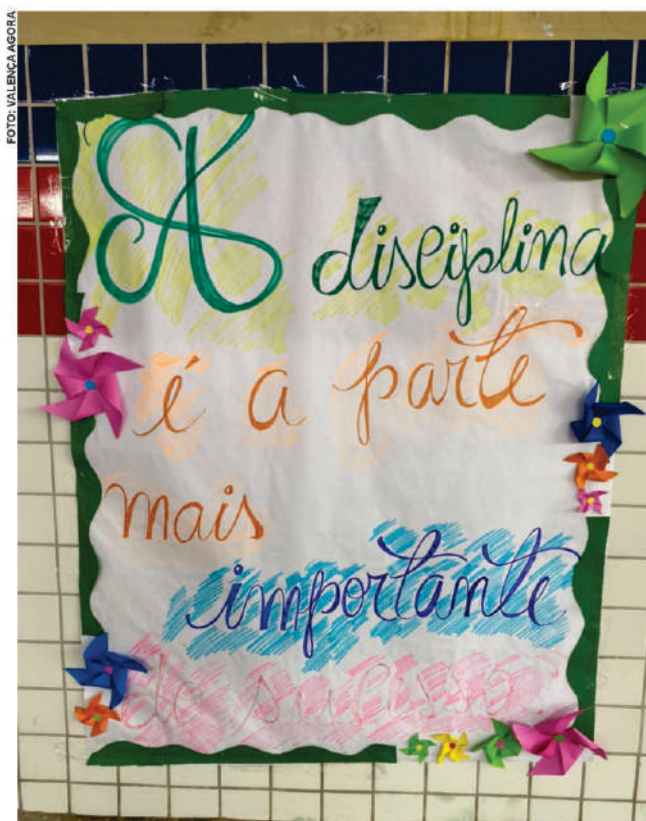 FOTO: VALENÇA AGORA
A disciplina
é a parte
mais
importante
do sucesso